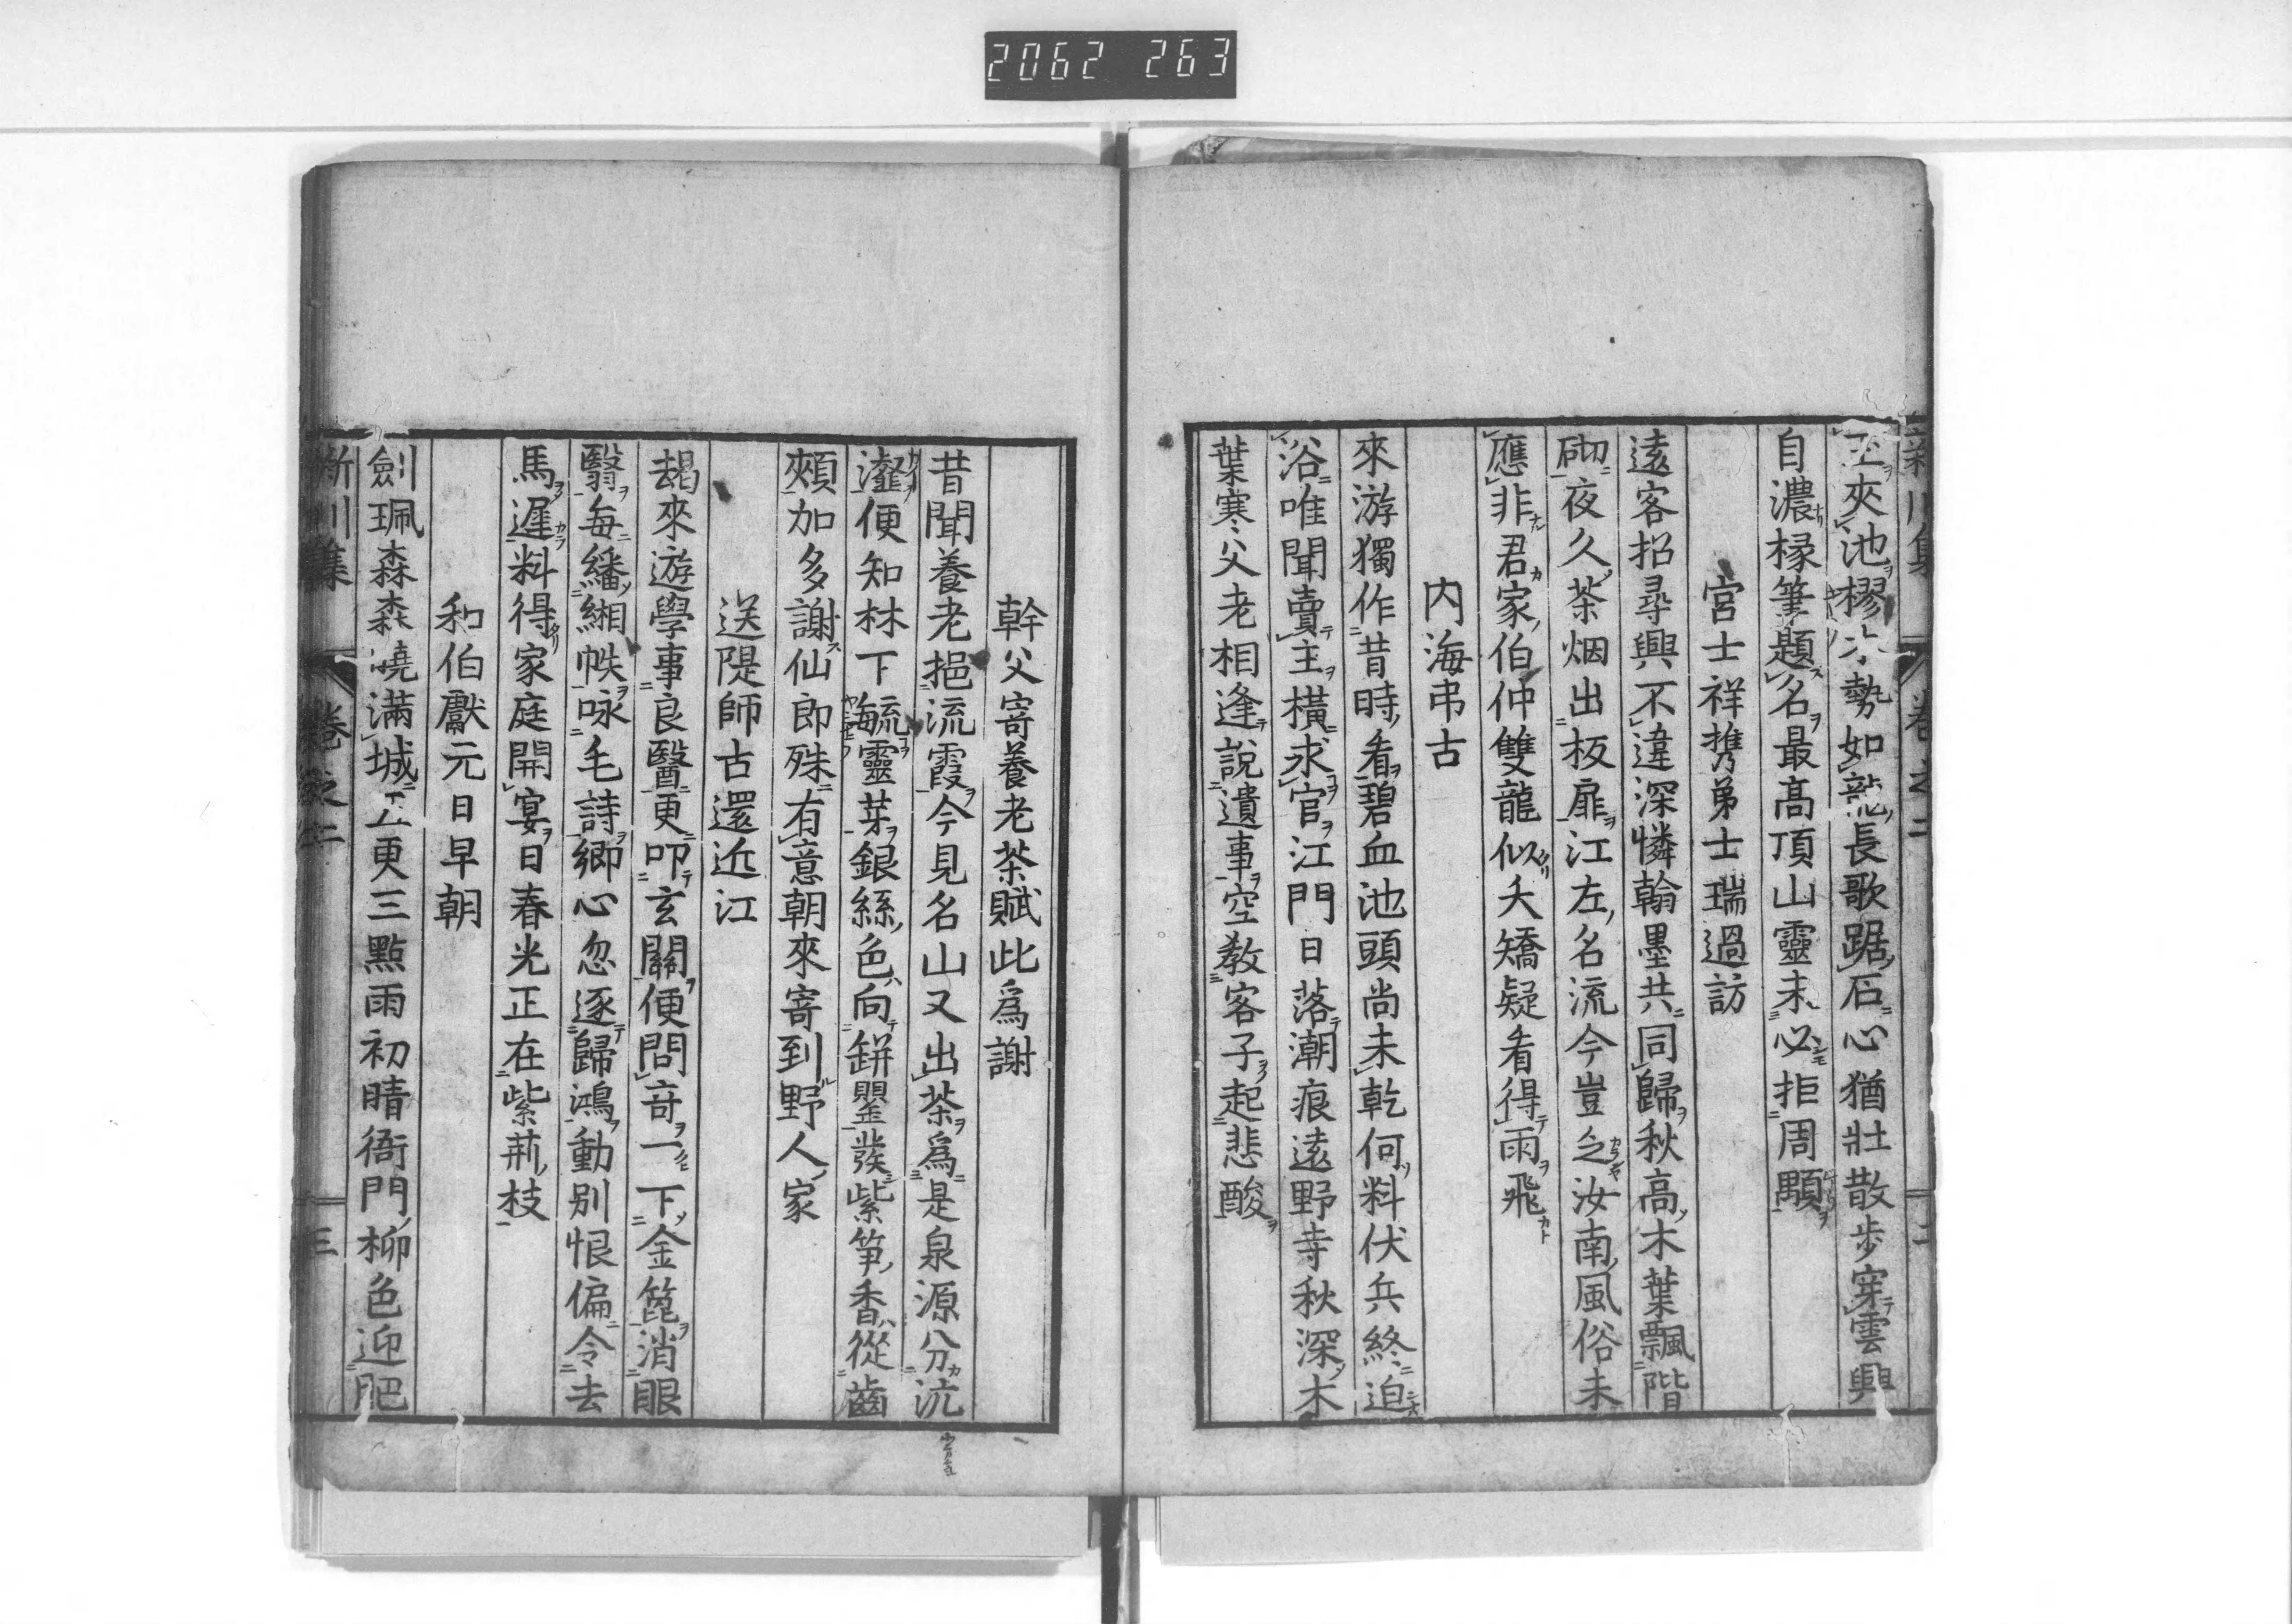 2062 263
夾池樛勢如龍長歌踞石心猶壯散步穿雲興
自濃椽筆題名最高頂山靈未必拒周顒
宮士祥携弟士瑞過訪
遠客招尋興不違深憐翰墨共同歸秋高木葉飄階
砌夜久茶烟出板扉江左名流今豈乏汝南風俗未
應非君家伯仲雙龍似夭矯疑看得雨飛
内海弔古
來游獨作昔時看碧血池頭尚未乾何料伏兵終迫
浴唯聞賣主橫求官江門日落潮痕遠野寺秋深木
葉寒父老相逢説遺事空教客子起悲酸
幹父寄養老茶賦此爲謝
昔聞養老挹流霞今見名山又出茶爲是泉源分沆
瀣便知林下毓靈芽銀絲色向缾罌發紫笋香從齒
頰加多謝仙郎殊有意朝來寄到野人家
送隄師古還近江
朅來遊學事良醫更叩玄關便問竒一下金篦消眼
翳每繙緗帙咏毛詩鄉心忽逐歸鴻動别恨偏令去
馬遲料得家庭開宴日春光正在紫荊枝
和伯獻元日早朝
劍珮森森曉滿城五更三點雨初晴衙門柳色迎
新川集
卷之二
三